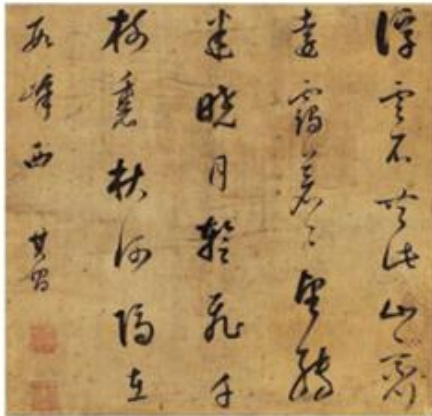 浮雲不共此山齊
遠靄蒼々望轉
迷曉月暫飛千
樹裏秋河隔在
數峰西 其昌